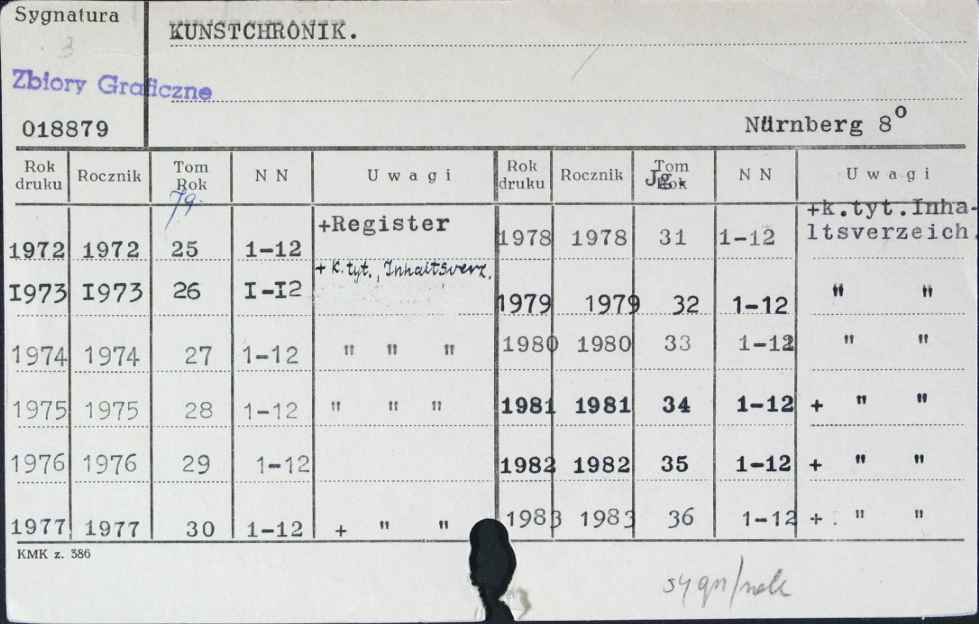 Sygnatura
3
KUNSTCHRONIK.
Zbiory Graficzne
018879
Nürnberg 8°
Rok druku Rocznik Tom Rok Jg. NN Uwagi
1972 1972 25 1-12 +Register
I973 I973 26 I-I2 + k.tyt., Inhaltsverz.
1974 1974 27 1-12 " " "
1975 1975 28 1-12 " " "
1976 1976 29 1-12
1977 1977 30 1-12 + " "
Rok druku Rocznik Tom Rok Jg. NN Uwagi
1978 1978 31 1-12 +k.tyt.Inha-
ltsverzeich.
1979 1979 32 1-12 " "
1980 1980 33 1-12 " "
1981 1981 34 1-12 + " "
1982 1982 35 1-12 + " "
1983 1983 36 1-12 + : " "
KMK z. 386